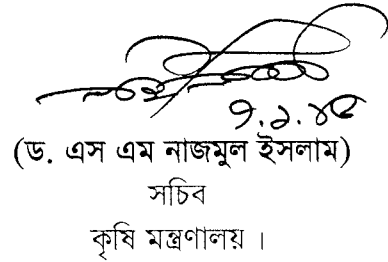 (ড. এস এম নাজমুল ইসলাম)
সচিব
কৃষি মন্ত্রণালয় ।